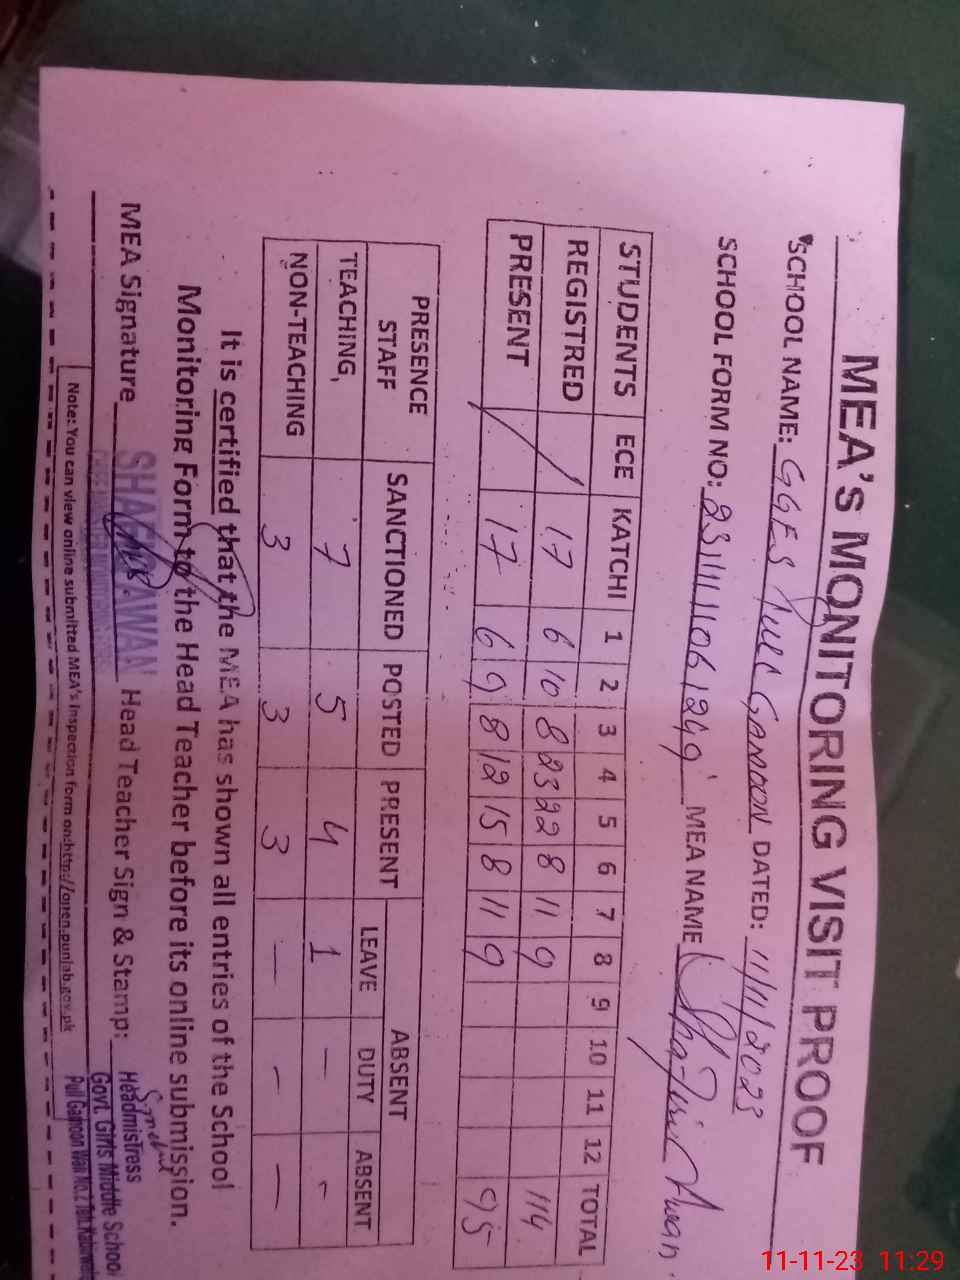 MEA'S MONITORING VISIT PROOF
SCHOOL NAME: GGES Pull Gamoon DATED: 11/11/2023
SCHOOL FORM NO: MEA NAME Awan
STUDENTS ECE KATCHI 1 2 3 4 5 6 7 8 9 10 11 12 TOTAL
REGISTRED / 17 6 10 8 23 22 8 11 9 114
PRESENT / 17 6 9 8 12 15 8 11 9 95
PRESENCE STAFF SANCTIONED POSTED PRESENT ABSENT
LEAVE DUTY ABSENT
TEACHING, 7 5 4 1 - -
NON-TEACHING 3 3 3 - - -
It is certified that the MEA has shown all entries of the School
Monitoring Form to the Head Teacher before its online submission.
MEA Signature Head Teacher Sign & Stamp:
AWAN
Headmistress
Govt. Girls Middle School
Pull Gamoon Wali
Note: You can view online submitted MEA's inspection form on:http://open.punjab.gov.pk
11-11-23 11:29